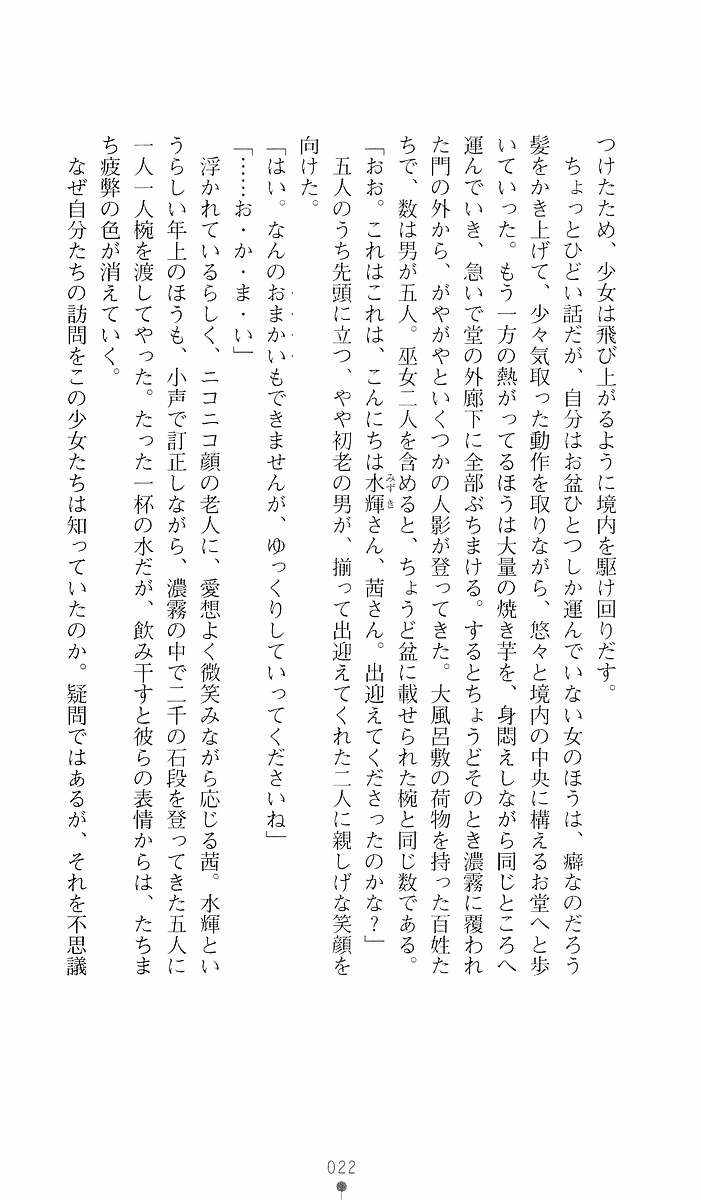 つけたため、少女は飛び上がるように境内を駆け回りだす。
　ちょっとひどい話だが、自分はお盆ひとつしか運んでいない女のほうは、癖なのだろう
髪をかき上げて、少々気取った動作を取りながら、悠々と境内の中央に構えるお堂へと歩
いていった。もう一方の熱がってるほうは大量の焼き芋を、身悶えしながら同じところへ
運んでいき、急いで堂の外廊下に全部ぶちまける。するとちょうどそのとき濃霧に覆われ
た門の外から、がやがやといくつかの人影が登ってきた。大風呂敷の荷物を持った百姓た
ちで、数は男が五人。巫女二人を含めると、ちょうど盆に載せられた椀と同じ数である。
「おお。これはこれは、こんにちは水輝さん、茜さん。出迎えてくださったのかな？」
みずき
　五人のうち先頭に立つ、やや初老の男が、揃って出迎えてくれた二人に親しげな笑顔を
向けた。
「はい。なんのおまかいもできませんが、ゆっくりしていってくださいね」
「……お・か・ま・い」
　浮かれているらしく、ニコニコ顔の老人に、愛想よく微笑みながら応じる茜。水輝とい
うらしい年上のほうも、小声で訂正しながら、濃霧の中で二千の石段を登ってきた五人に
一人一人椀を渡してやった。たった一杯の水だが、飲み干すと彼らの表情からは、たちま
ち疲弊の色が消えていく。
　なぜ自分たちの訪問をこの少女たちは知っていたのか。疑問ではあるが、それを不思議
022